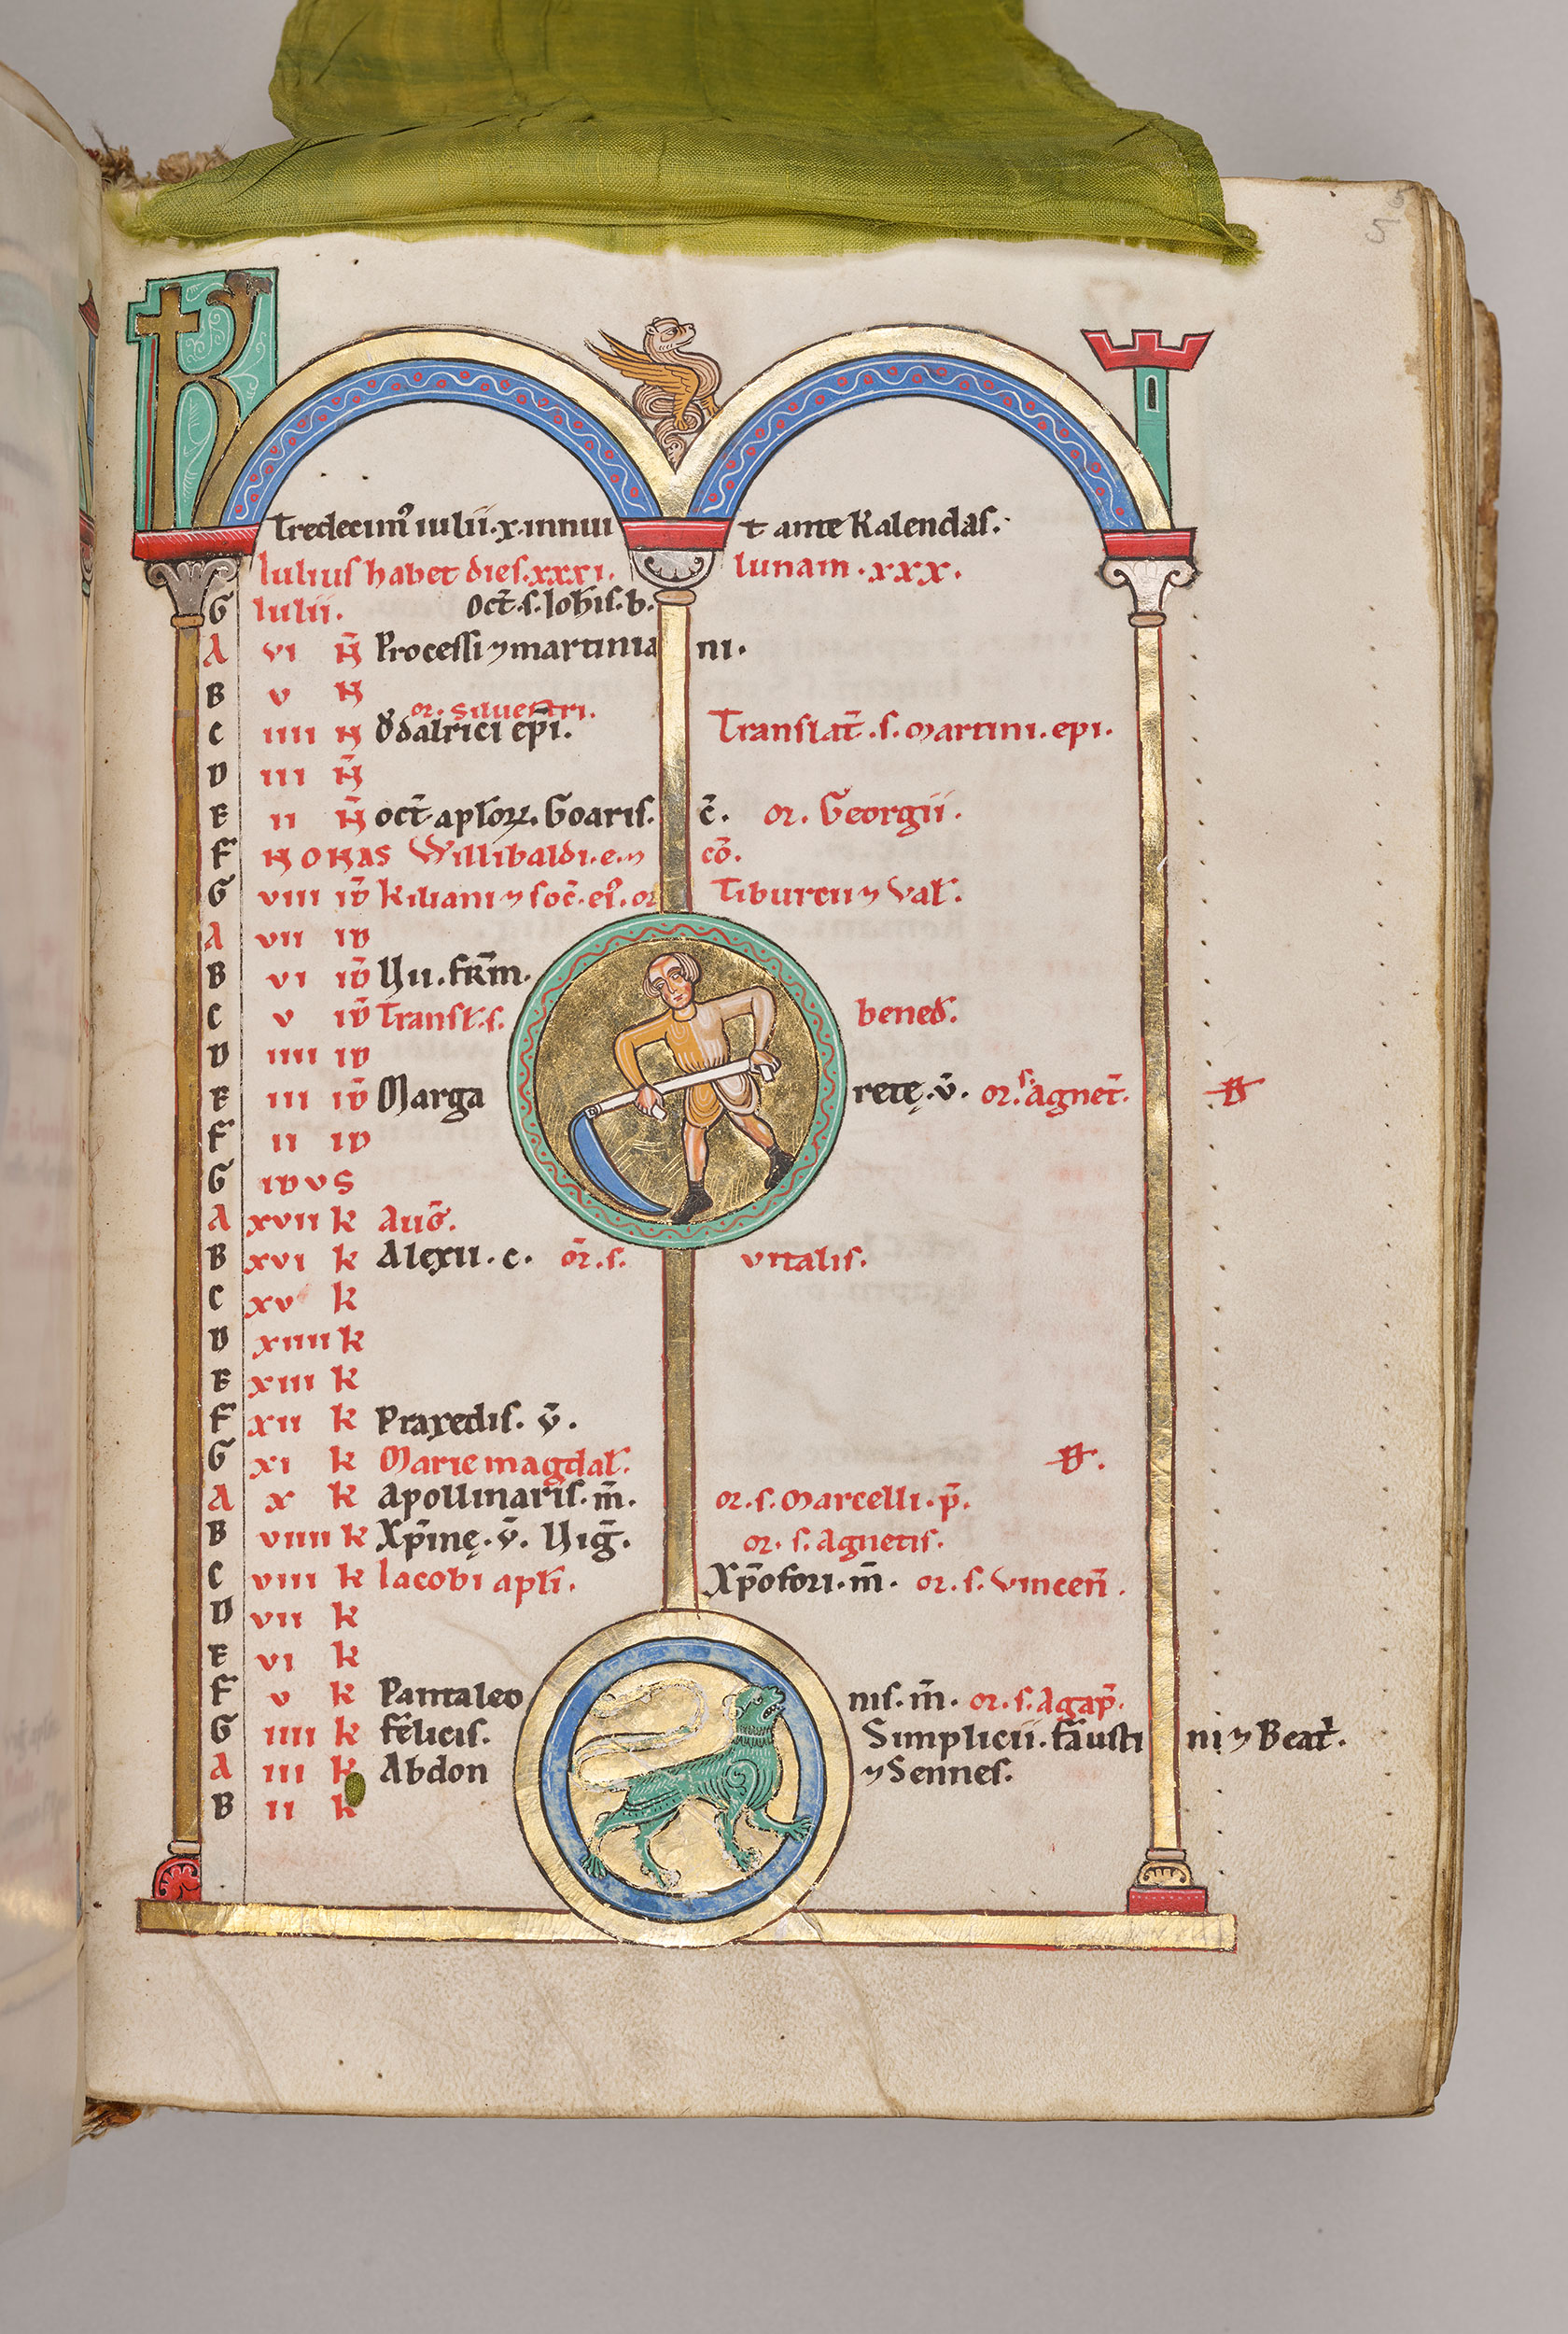 5
KL
Tredecim᷒ iulii·x·innuit ante Kalendas.
Iulius habet dies·xxxi. lunam·xxx.
G Iulii. Oct̄·s·Ioh̄is·b.
A vi N̄ Processi ⁊ martiniani.
B v N
or. siluestri.
C iiii N Ǒdalrici ep̄i. Translat̄·s·martini·epi.
D iii N̄
E ii N̄ oct̄·aplōꝝ. Goaris. c̄. or. Georgii.
F NONAS Willibaldi·e·⁊ cō.
G viii iD̄ kiliani ⁊ soc̄·ei᷒. or Tiburcii ⁊ Val̄.
A vii iD
B vi iD̄ Vii·fr̄m.
C v iD̄ Transl̄·s. bened̄.
D iiii iD
E iii iD̄ Margaretę·v̄· or·s·Agnet̄.
F ii iD
G iDVS
A xvii k Auḡ.
B xvi k Alexii·c· ōr·s. vitalis.
C xv k
D xiiii k
E xiii k
F xii k Praxedis· v̄·
G xi k Marie magdal̄.
A x k Apollinaris·m̄. or·s·Marcelli·p̄.
B viiii k Xp̄inę·v̄· Viḡ. or·s·Agnetis.
C viii k Iacobi apl̄i. Xp̄ofori·m̄· or·s·Vincen̄.
D vii k
E vi k
F v k Pantaleonis·m̄· or·s·Agap̄.
G iiii k felicis. Simplicii·faustini ⁊ Beat̄.
A iii k Abdon ⁊ Sennes.
B ii k